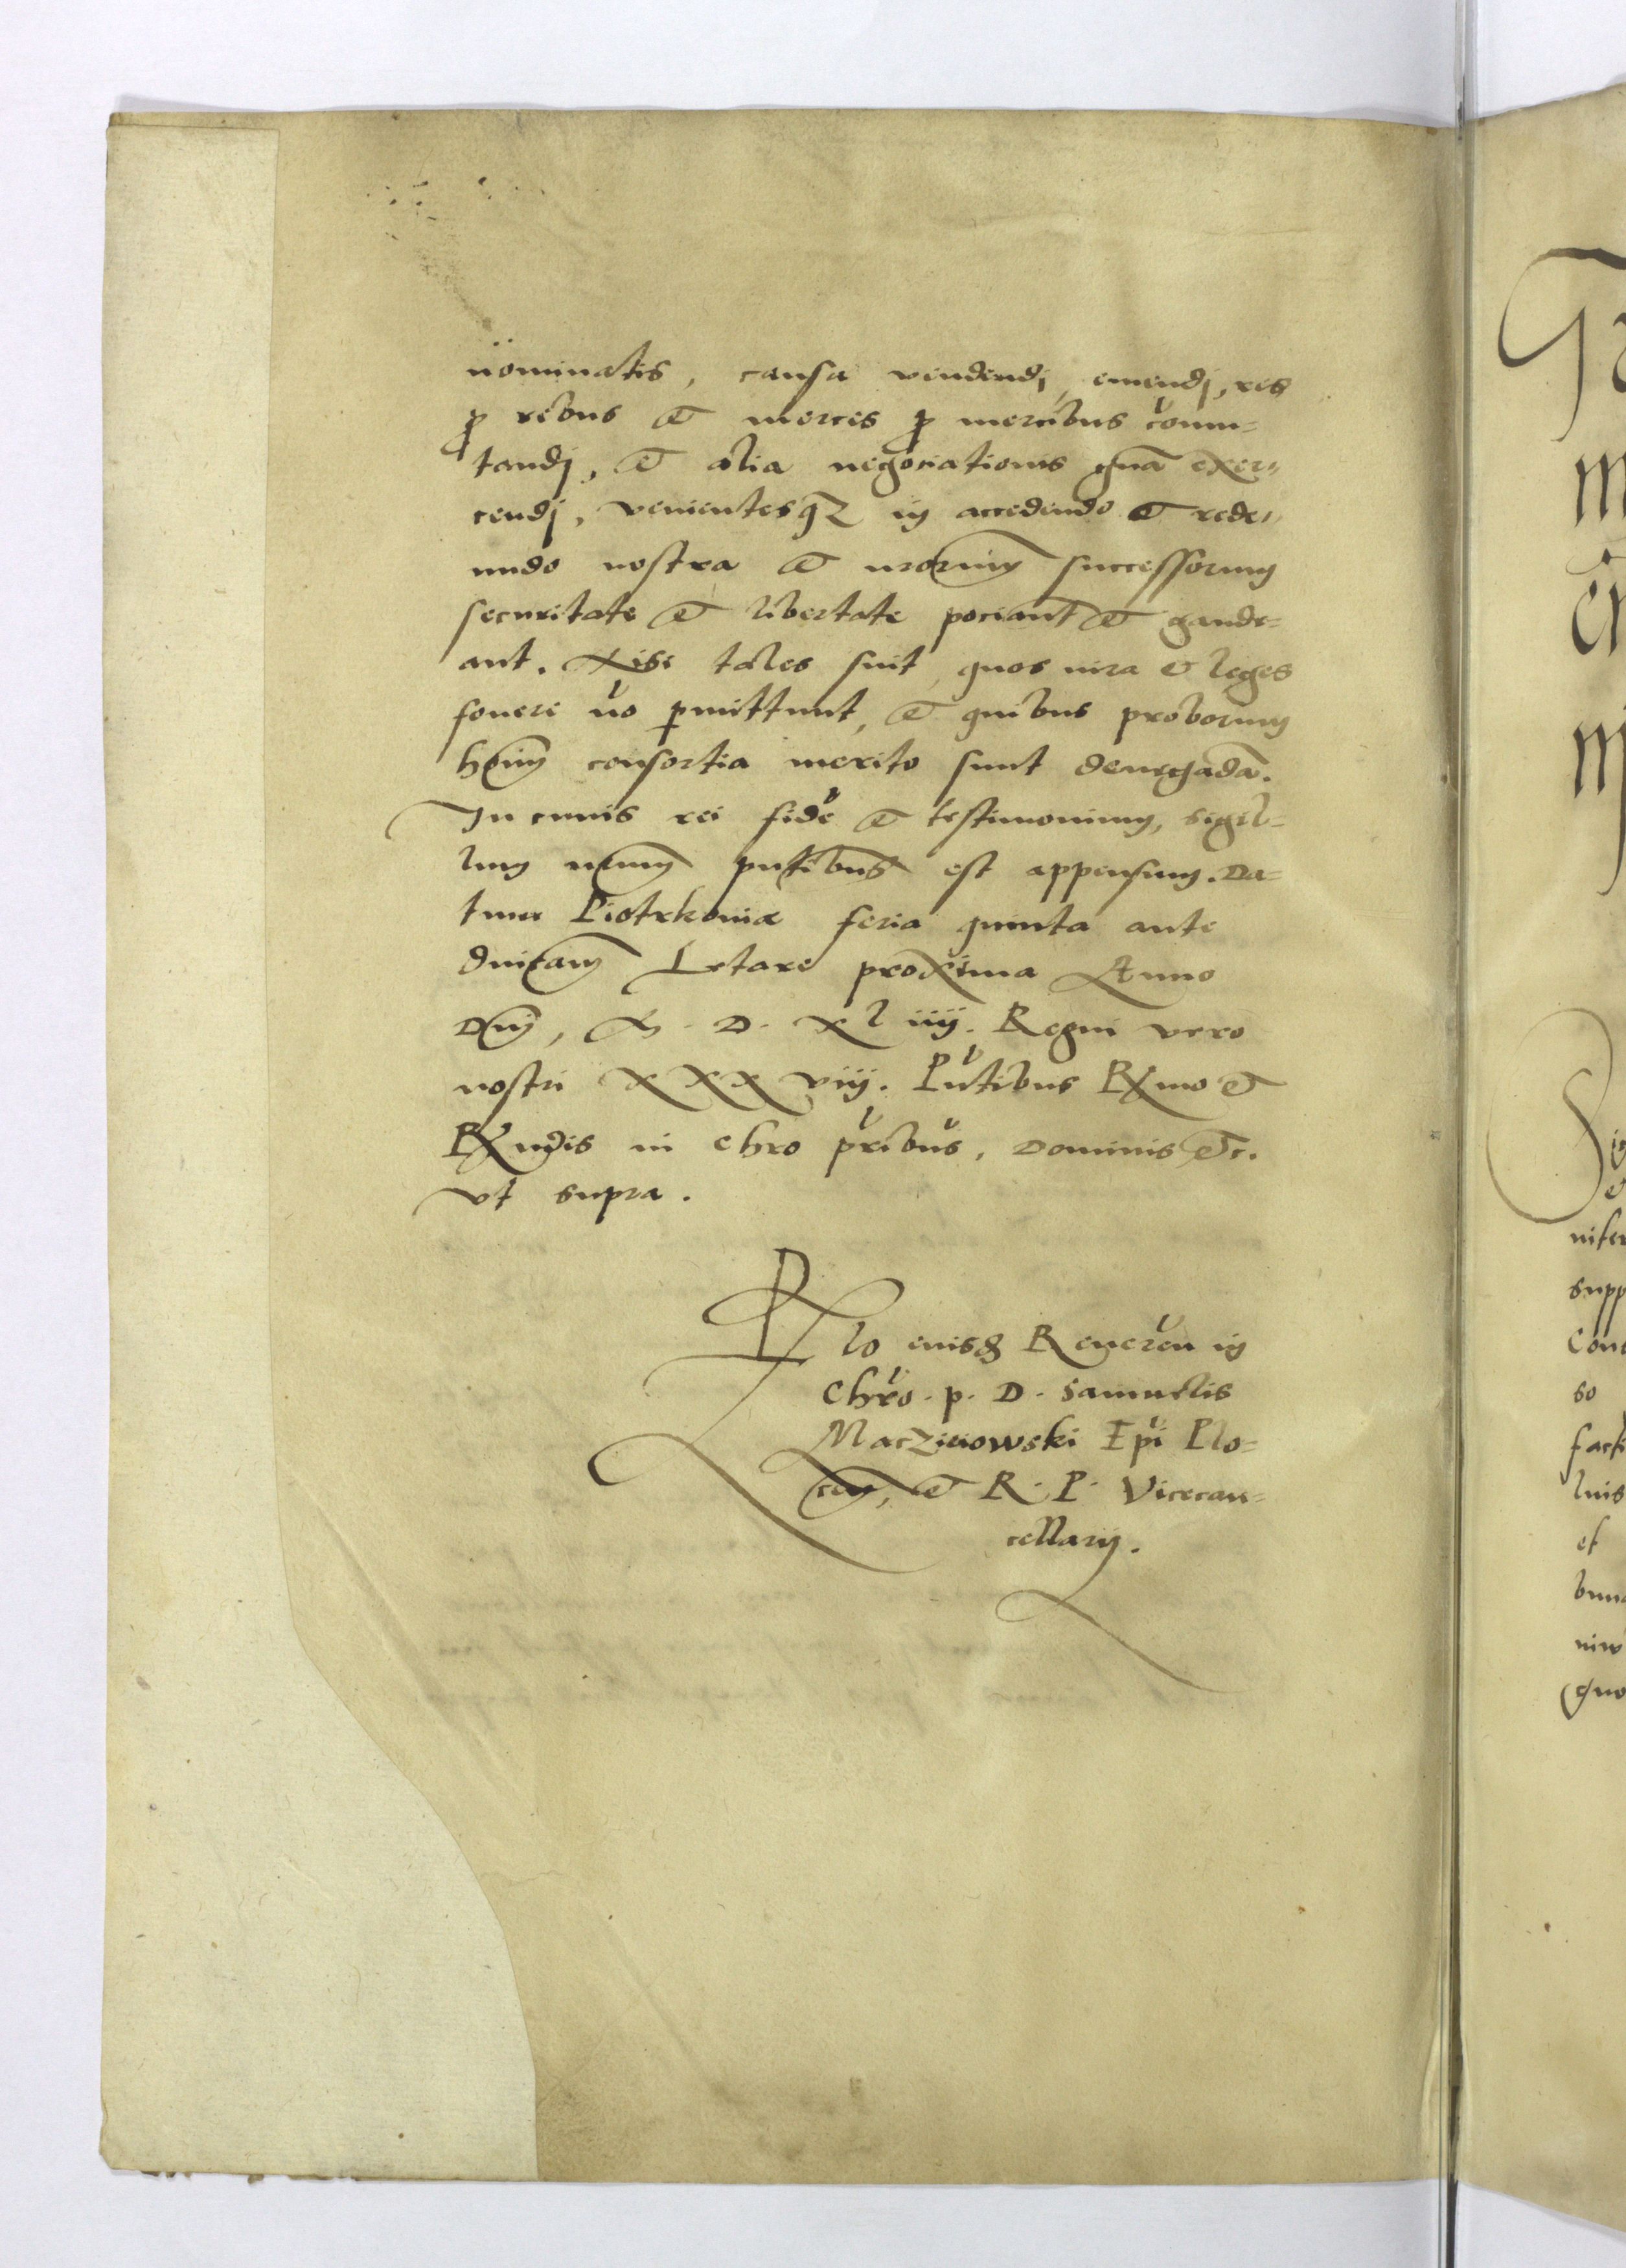 nominatis, causa vendendj, emendj, res
p rebus et merces p mercibus comu-
tandj, et alia negociationis gna exer-
cendj, venientesqz in accedendo et rede-
undo nostra et nrorum successorum
securitate et libertate pociant et gaude-
ant. Nisi tales sint, quos iura et leges
fouere no pmittunt, et quibus proborum
hoim consortia merito sunt deneganda.
In cuius rei fide et testimonium, sigil-
lum nrum pntibus est appensum. Da-
tum Piotrkouiæ feria quinta ante
dnicam Letare proxima Anno
Dnj, M. D. XL iiij. Regni vero
nostri XXX viij. Pntibus Rmo et
Rndis in chro pribus, Dominis etc.
vt supra.
Rlo eiusd Reueren in
Chro. p. D. Samuelis
Maczieiowski Epi Plo-
cen, et R. P. Vicecan-
cellarij.
nifer
supp
so
facti
luis
et
quo